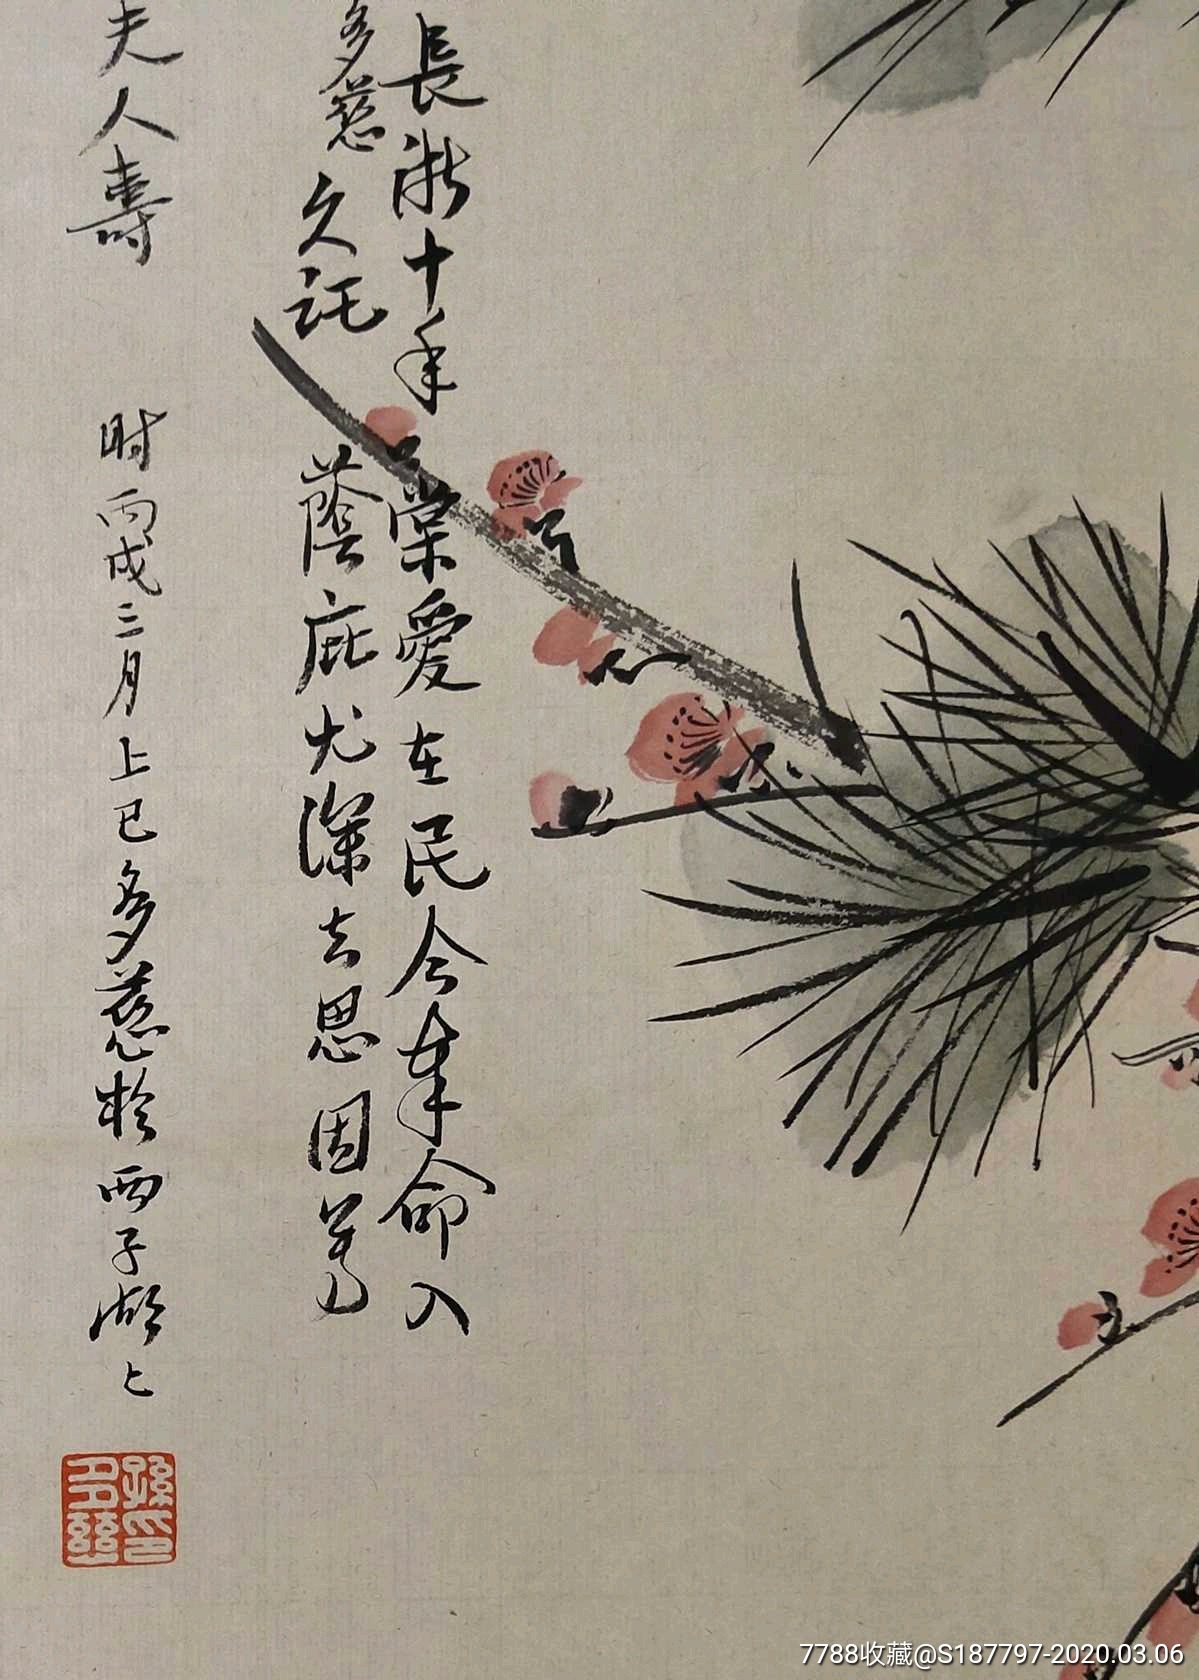 長浙十年棠愛在民今奉命入
多慈久託蔭庇尤深去思因寫
夫人壽
时丙戌三月上巳多慈於西子湖上
孫多慈印
7788收藏@S187797-2020.03.06